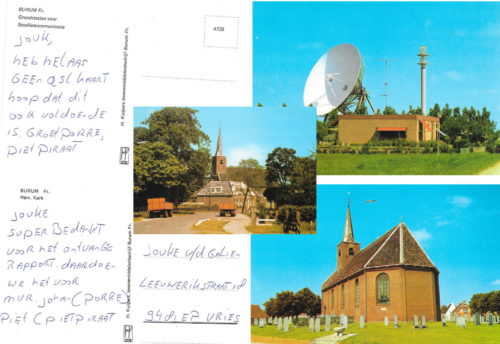 BURUM Fr.
Grondstation voor
Satellietcommunicatie
4728
JOUK,
HEB HELAAS
GEEN QSL KAART
HOOP DAT DIT
OOK VOLDOENDE
IS. GROET PORRE,
PIET PIRAAT
H. Kuipers levensmiddelenbedrijf Burum Fr.
BURUM Fr.
Herv. Kerk
JOUKE
SUPER BEDANKT
VOOR HET ONTVANGE
RAPPORT. DAARDOEN
WE HET VOOR
MVR. JOHN (PORRE)
PIET (PIETPIRAAT
H. Kuipers levensmiddelenbedrijf Burum Fr.
JOUKE v/d GALIEN
LEEUWERIKSTRAAT
9481 EP VRIES